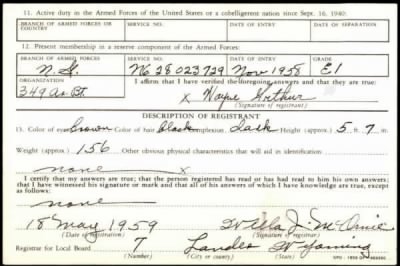 11. Active duty in the Armed Forces of the United States or a cobelligerent nation since Sept. 16, 1940:
BRANCH OF ARMED FORCES OR COUNTRY SERVICE NO. DATE OF ENTRY DATE OF SEPARATION
12. Present membership in a reserve component of the Armed Forces:
BRANCH OF ARMED FORCES SERVICE NO. DATE OF ENTRY GRADE
N.G. NG 28 023 729 Nov 1958 E1
ORGANIZATION I affirm that I have verified the foregoing answers and that they are true:
349 Bt.
x Wayne Arthur
(Signature of registrant)
DESCRIPTION OF REGISTRANT
13. Color of eyes Brown Color of hair Black Complexion Dark Height (approx.) 5 ft. 7 in.
Weight (approx.) 156 Other obvious physical characteristics that will aid in identification
none x
I certify that my answers are true; that the person registered has read or has had read to him his own answers; that I have witnessed his signature or mark and that all of his answers of which I have knowledge are true, except as follows:
none
18 May 1959 Willa J.
(Date of registration) (Signature of registrar)
Registrar for Local Board 7 Lander Wyoming
(Number) (City or county) (State)